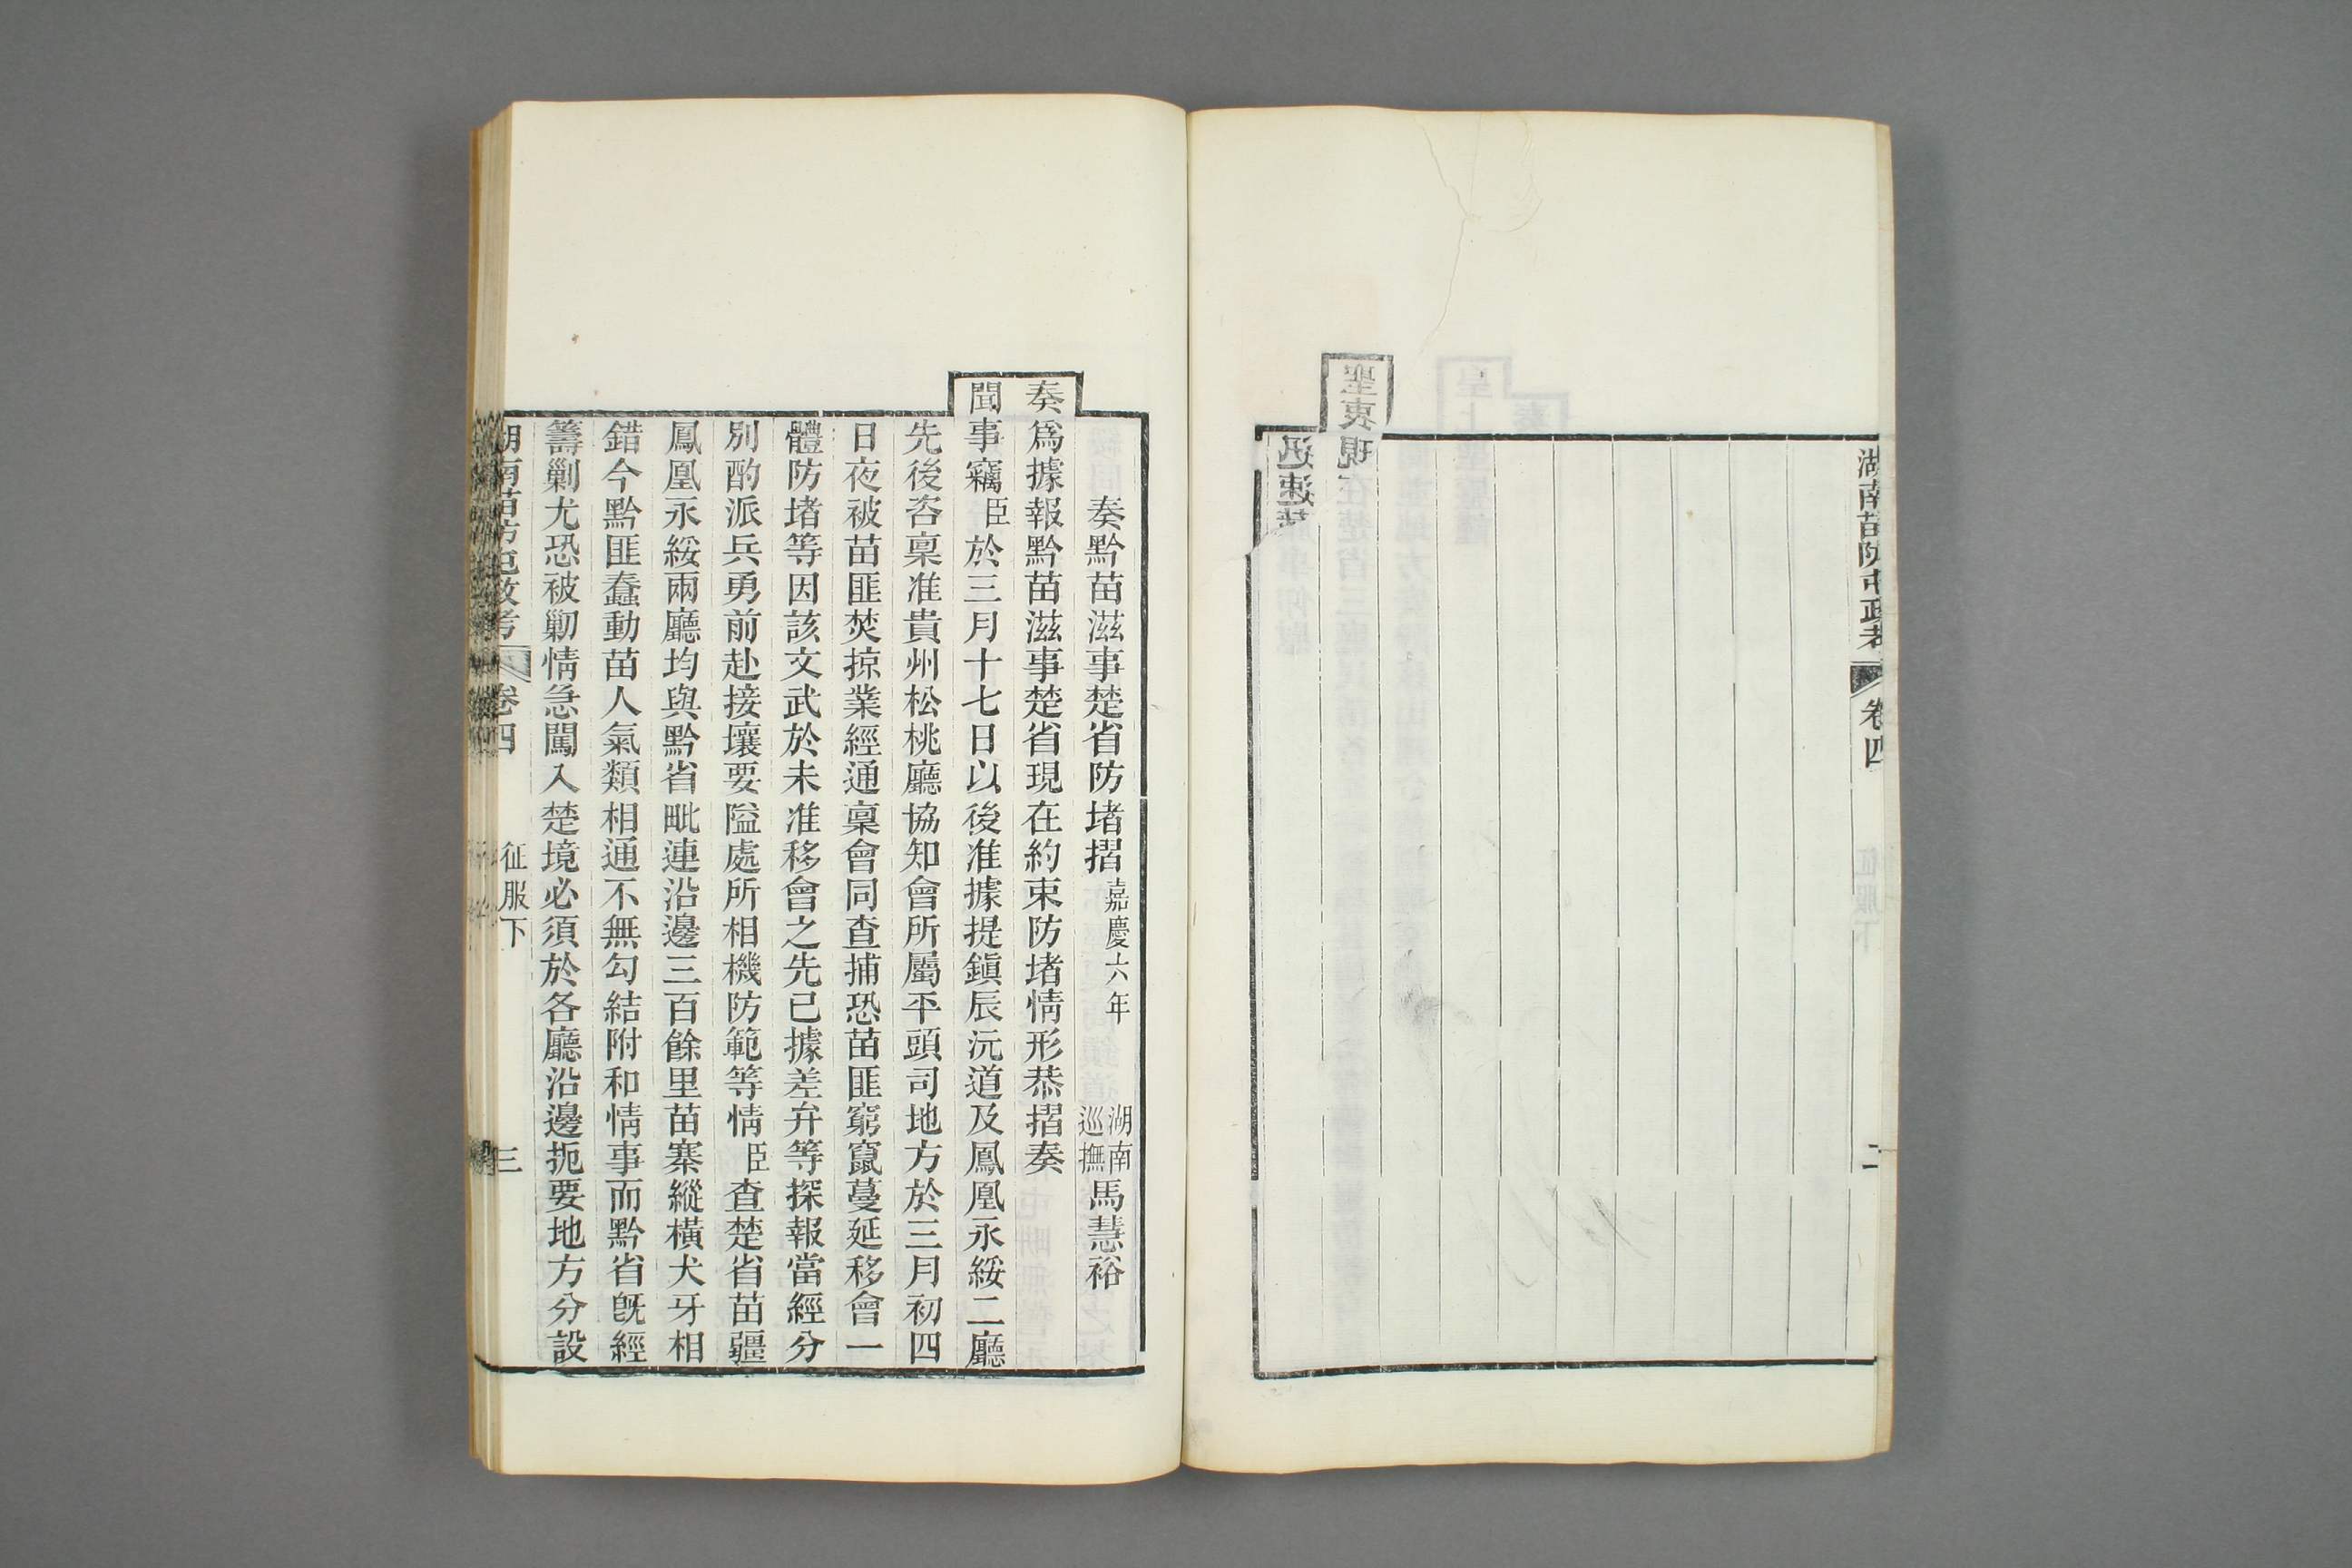 湖南苗防屯政考
卷四
征服下
二
奏黔苗滋事楚省防堵摺 嘉慶六年 湖南巡撫 馬慧裕
奏爲據報黔苗滋事楚省現在約束防堵情形恭摺奏
聞事竊臣於三月十七日以後准據提鎭辰沅道及鳳凰永綏二廳
先後咨稟准貴州松桃廳協知會所屬平頭司地方於三月初四
日夜被苗匪焚掠業經通稟會同查捕恐苗匪窮竄蔓延移會一
體防堵等因該文武於未准移會之先已據差弁等探報當經分
別酌派兵勇前赴接壤要隘處所相機防範等情臣查楚省苗疆
鳳凰永綏兩廳均與黔省毗連沿邊三百餘里苗寨縱橫犬牙相
錯今黔匪蠢動苗人氣類相通不無勾結附和情事而黔省旣經
籌剿尤恐被剿情急闖入楚境必須於各廳沿邊扼要地方分設
湖南苗防屯政考
卷四
征服下
三